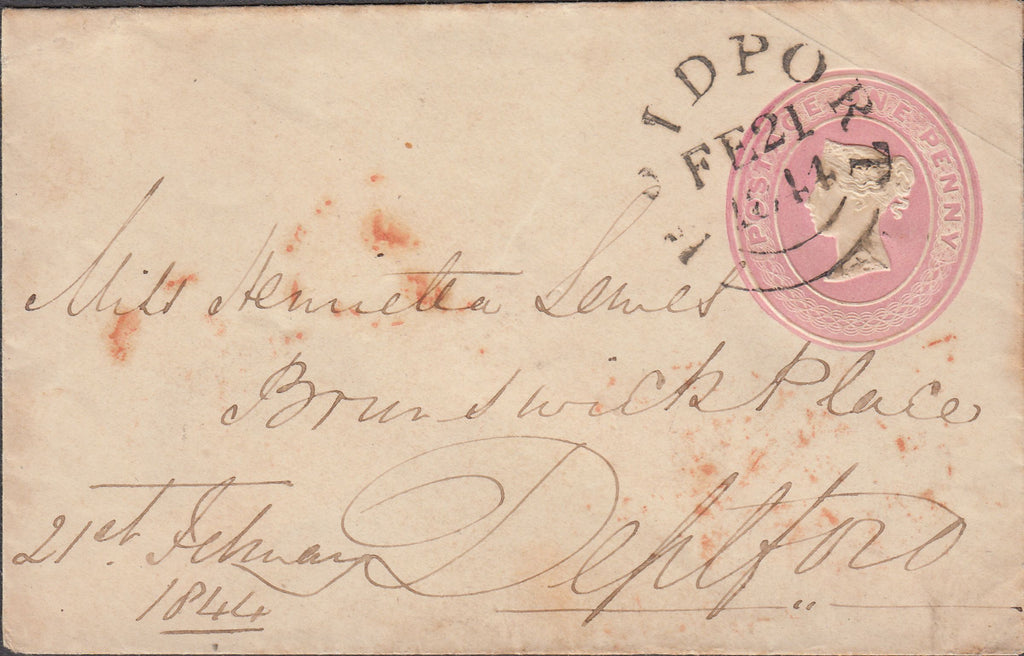 BRIDPORT
FE 21
1844
POSTAGE ONE PENNY
Miss Henrietta Lewes
Brunswick Place
Deptford
21st. February
1844